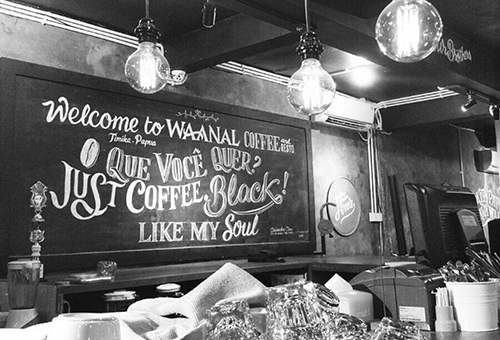 Welcome to WAANAL COFFEE and RESTO
Timika - Papua
O QUE VOCÊ QUER?
JUST COFFEE, Black!
LIKE MY Soul